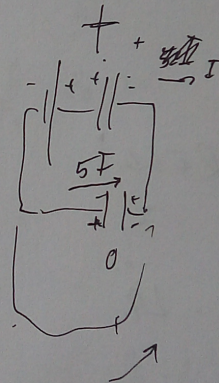 +
- + + -
I
5F
+ -
0